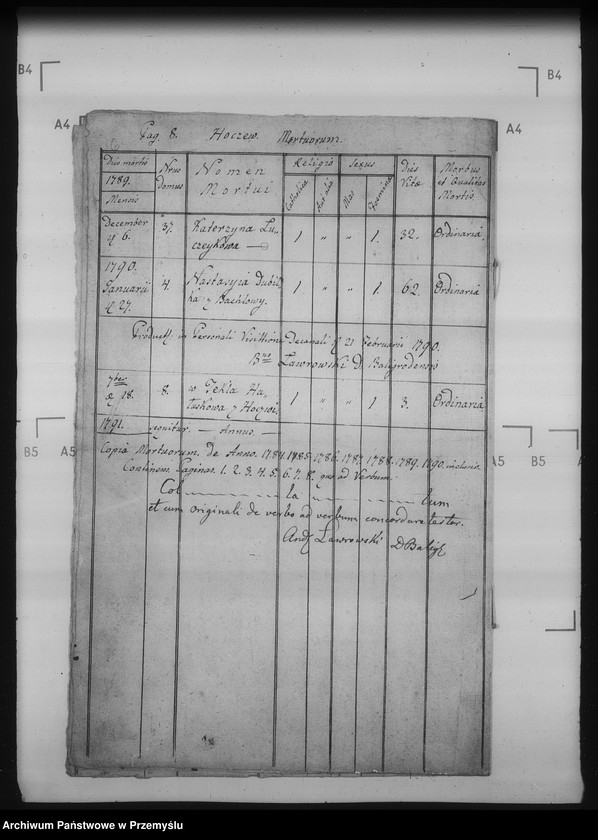 B4
B4
A4
A4
Pag. 8. Hoczew. Mortuorum.
Dies mortis
1789.
Mensis
Nrus
domus
Nomen
Mortui
Religio
Catholica
Aut alia
Sexus
Mas
Foemina
Dies
Vitæ
Morbus
et Qualitas
Mortis.
December
6. 37. Katerzyna Lu-
czeykowa — 1 " " 1. 32. Ordinaria.
1790.
Januarii
27. 4. Nastasyia Dubil-
ka z Bachlowy. 1 " " 1. 62. Ordinaria
Product. in Personali Visittione Decanali 21 Februarii 1790.
Ławrowski D. Baligrodensis
7bris
18. 8. Tekla Ha-
luskowa z Hoczwi. 1 " " 1 3. Ordinaria
1791. sequitur. — Annus. —
B5
A5
A5
B5
Copia Mortuorum de Anno. 1784. 1785. 1786. 1787. 1788. 1789. 1790. inclusive
Continens Paginas. 1. 2. 3. 4. 5. 6. 7. 8. que ad Verbum.
Col la tum
et cum originali de verbo ad verbum concordare testor.
Andr Ławrowski D Balig
Archiwum Państwowe w Przemyślu